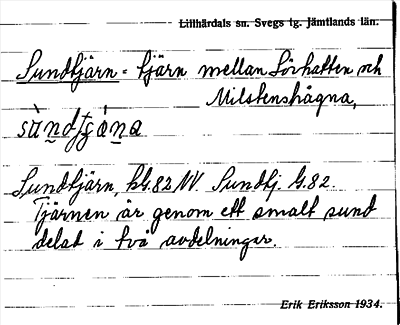 Lillhärdals sn. Svegs tg. Jämtlands län.
Sundtjärn = tjärn mellan Lövhatten och
Milstenshågna,
Sundtjärn, kG.82 NV. Sundtj. G.82.
Tjärnen är genom ett smalt sund
delat i två avdelningar.
Erik Eriksson 1934.